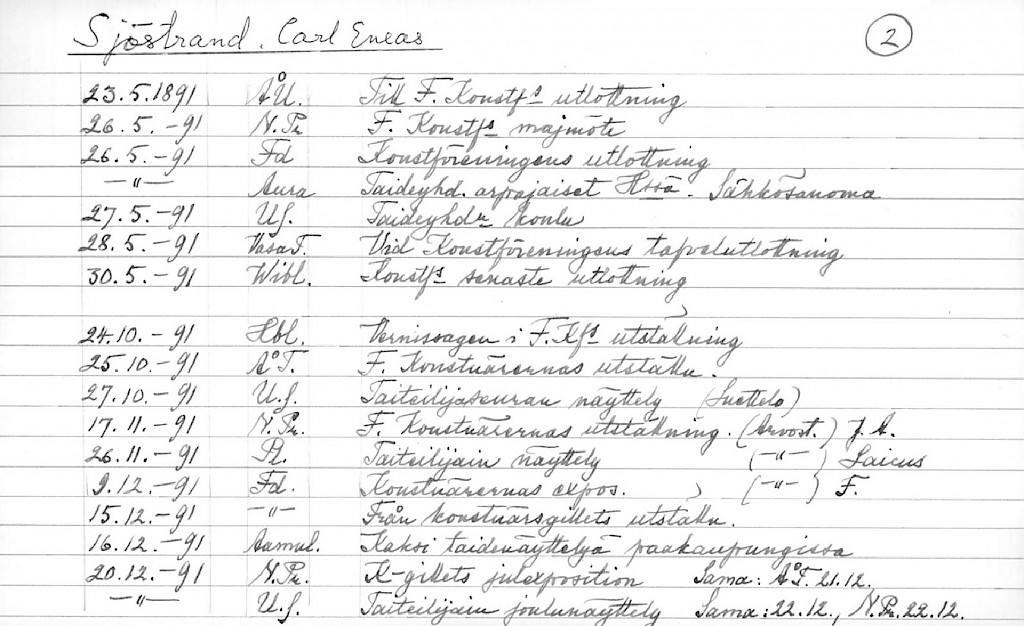 Sjöstrand, Carl Eneas 2
23.5.1891 ÅU. Till F. Konstfs utlottning
26.5.-91 N.Pr. F. Konstfs majmöte
26.5.-91 Fd Konstföreningens utlottning
-"- Aura Taideyhd. arpajaiset Hssä - Sähkösanoma
27.5.-91 U.S. Taideyhdn koulu
28.5.-91 Vasa T. Vid Konstföreningens tafvelutlottning
30.5.-91 Wibl. Konstfs senaste utlottning
24.10.-91 Hbl. Vernissagen i F. Kfs utställning
25.10-91 ÅT. F. Konstnärernas utställn.
27.10.-91 U.S. Taiteilijaseuran näyttely (Luettelo)
17.11.-91 N.Pr. F. Konstnärernas utställning. (Arvost.) J. A.
26.11.-91 Pl. Taiteilijain näyttely (-"-) Laicus
9.12.-91 Fd. Konstnärernas expos. (-"-) F.
15.12.-91 -"- Från konstnärsgillets utställn.
16.12.-91 Aamul. Kaksi taidenäyttelyä pääkaupungissa
20.12.-91 N.Pr. K-gillets julexposition Sama: ÅT. 21.12.
-"- U.S. Taiteilijain joulunäyttely Sama: 22.12., N.Pr. 22.12.